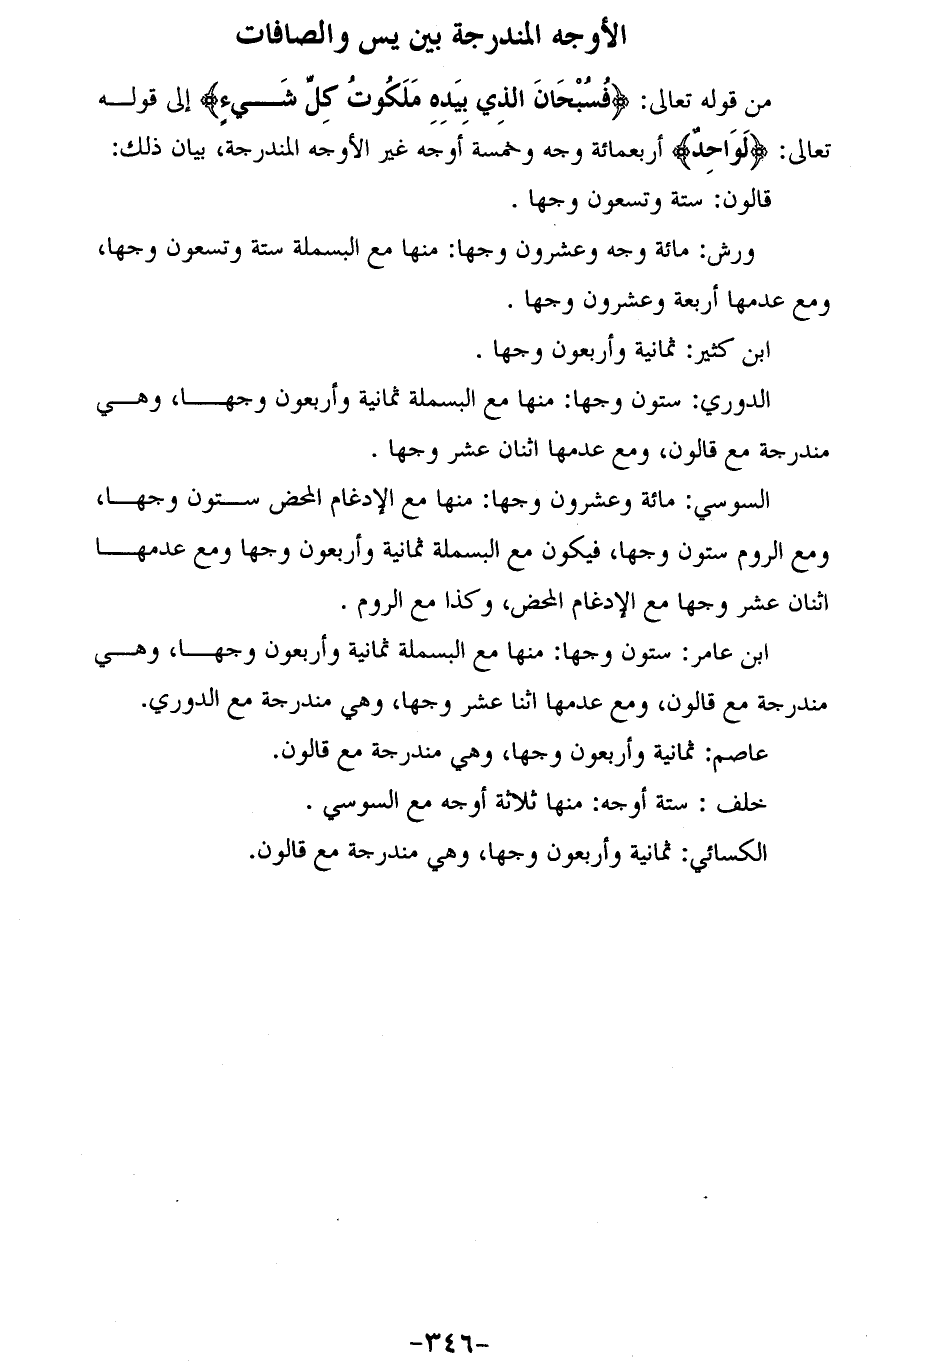 الأوجه المندرجة بين يس والصافات
من قوله تعالى: ﴿فَسُبْحَانَ الذِي بِيَدِهِ مَلَكُوتُ كِلِّ شَيءٍ﴾ إلى قوله
تعالى: ﴿لَوَاحِدٌ﴾ أربعمائة وجه وخمسة أوجه غير الأوجه المندرجة، بيان ذلك:
قالون: ستة وتسعون وجها .
ورش: مائة وجه وعشرون وجها: منها مع البسملة ستة وتسعون وجها،
ومع عدمها أربعة وعشرون وجها .
ابن كثير: ثمانية وأربعون وجها .
الدوري: ستون وجها: منها مع البسملة ثمانية وأربعون وجها، وهي
مندرجة مع قالون، ومع عدمها اثنان عشر وجها .
السوسي: مائة وعشرون وجها: منها مع الإدغام المحض ستون وجها،
ومع الروم ستون وجها، فيكون مع البسملة ثمانية وأربعون وجها ومع عدمها
اثنان عشر وجها مع الإدغام المحض، وكذا مع الروم .
ابن عامر: ستون وجها: منها مع البسملة ثمانية وأربعون وجها، وهي
مندرجة مع قالون، ومع عدمها اثنا عشر وجها، وهي مندرجة مع الدوري.
عاصم: ثمانية وأربعون وجها، وهي مندرجة مع قالون.
خلف : ستة أوجه: منها ثلاثة أوجه مع السوسي .
الكسائي: ثمانية وأربعون وجها، وهي مندرجة مع قالون.
-٣٤٦-